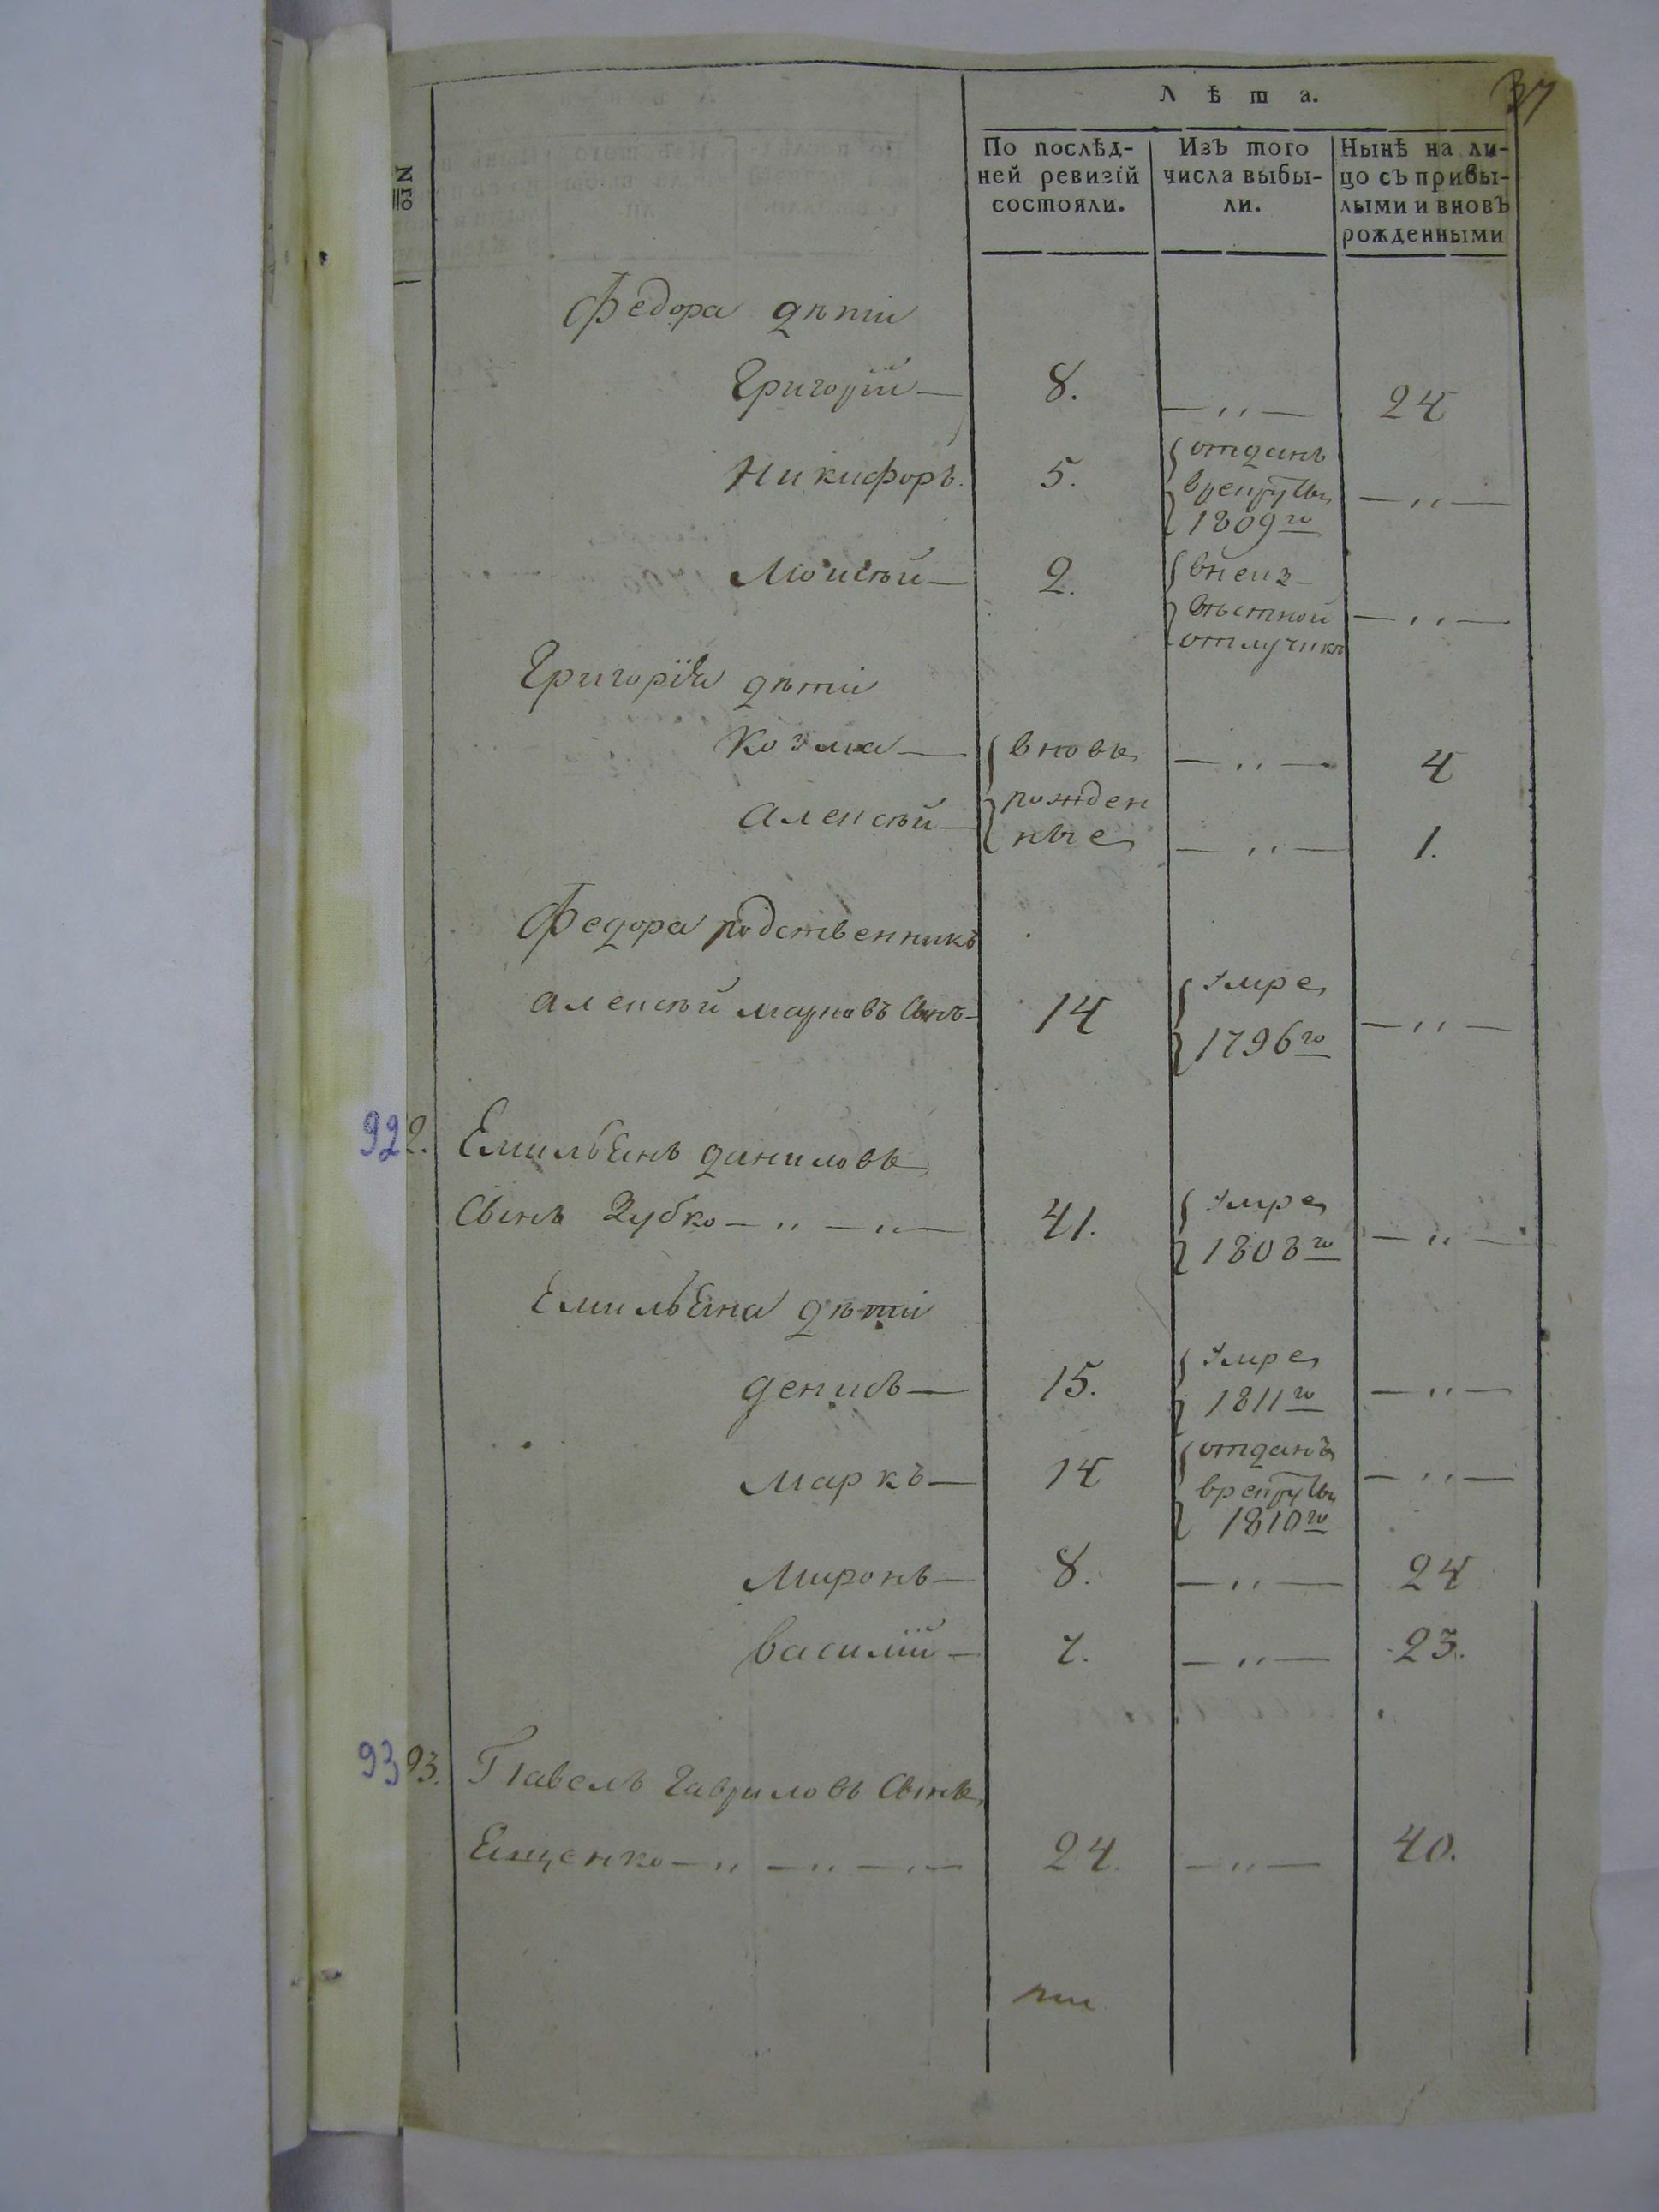 37
№
Лѣта.
По послѣд-
ней ревизій
состояли.
ИзЪ того
числа выбы-
ли.
Нынѣ на ли-
цо съ прибы-
лыми и вновЪ
рожденными
Федора дѣти
Григорій — 8. — „ — 24
Никифоръ. 5. отданъ
врекруты — „ —
1809го
Моисѣй — 2. внеиз-
вѣстной — „ —
отлучкѣ
Григорія дѣти
Козма — вновь — „ — 4
рожден
Алексѣй — ные — „ — 1.
Федора родственникъ
Алексѣй марковъ Сынъ — 14 умре
1796го — „ —
92 2. Емильянъ даниловъ
Сынъ Зубко — „ — „ — 41. умре
1808го — „ —
Емильяна дѣти
денисъ — 15. умре
1811го — „ —
маркъ — 14 отданъ
врекруты — „ —
1810го
Миронъ — 8. — „ — 24
василій — 7. — „ — 23.
93 93. Павелъ Гавриловъ Сынъ
Ященко — „ — „ — „ — 24. — „ — 40.